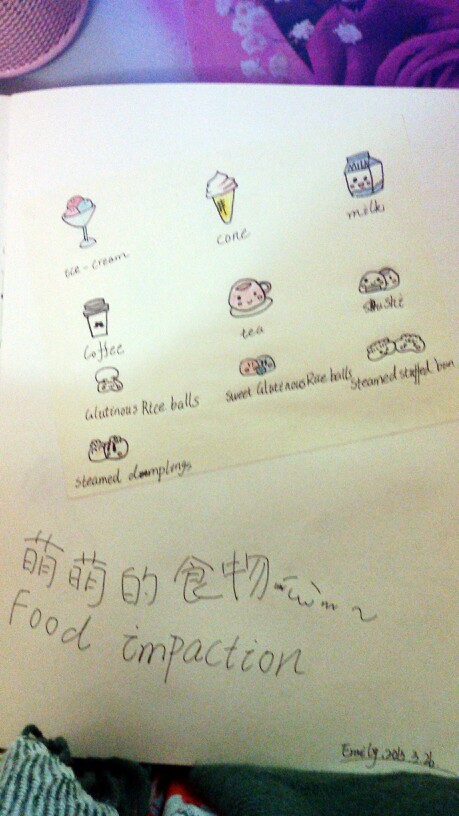 MILK
ice-cream
cone
milk
Coffee
tea
sushi
Glutinous Rice balls
Sweet Glutinous Rice balls
Steamed stuffed bun
Steamed dumplings
萌萌的食物
Food impaction
Emily. 2013.3.26